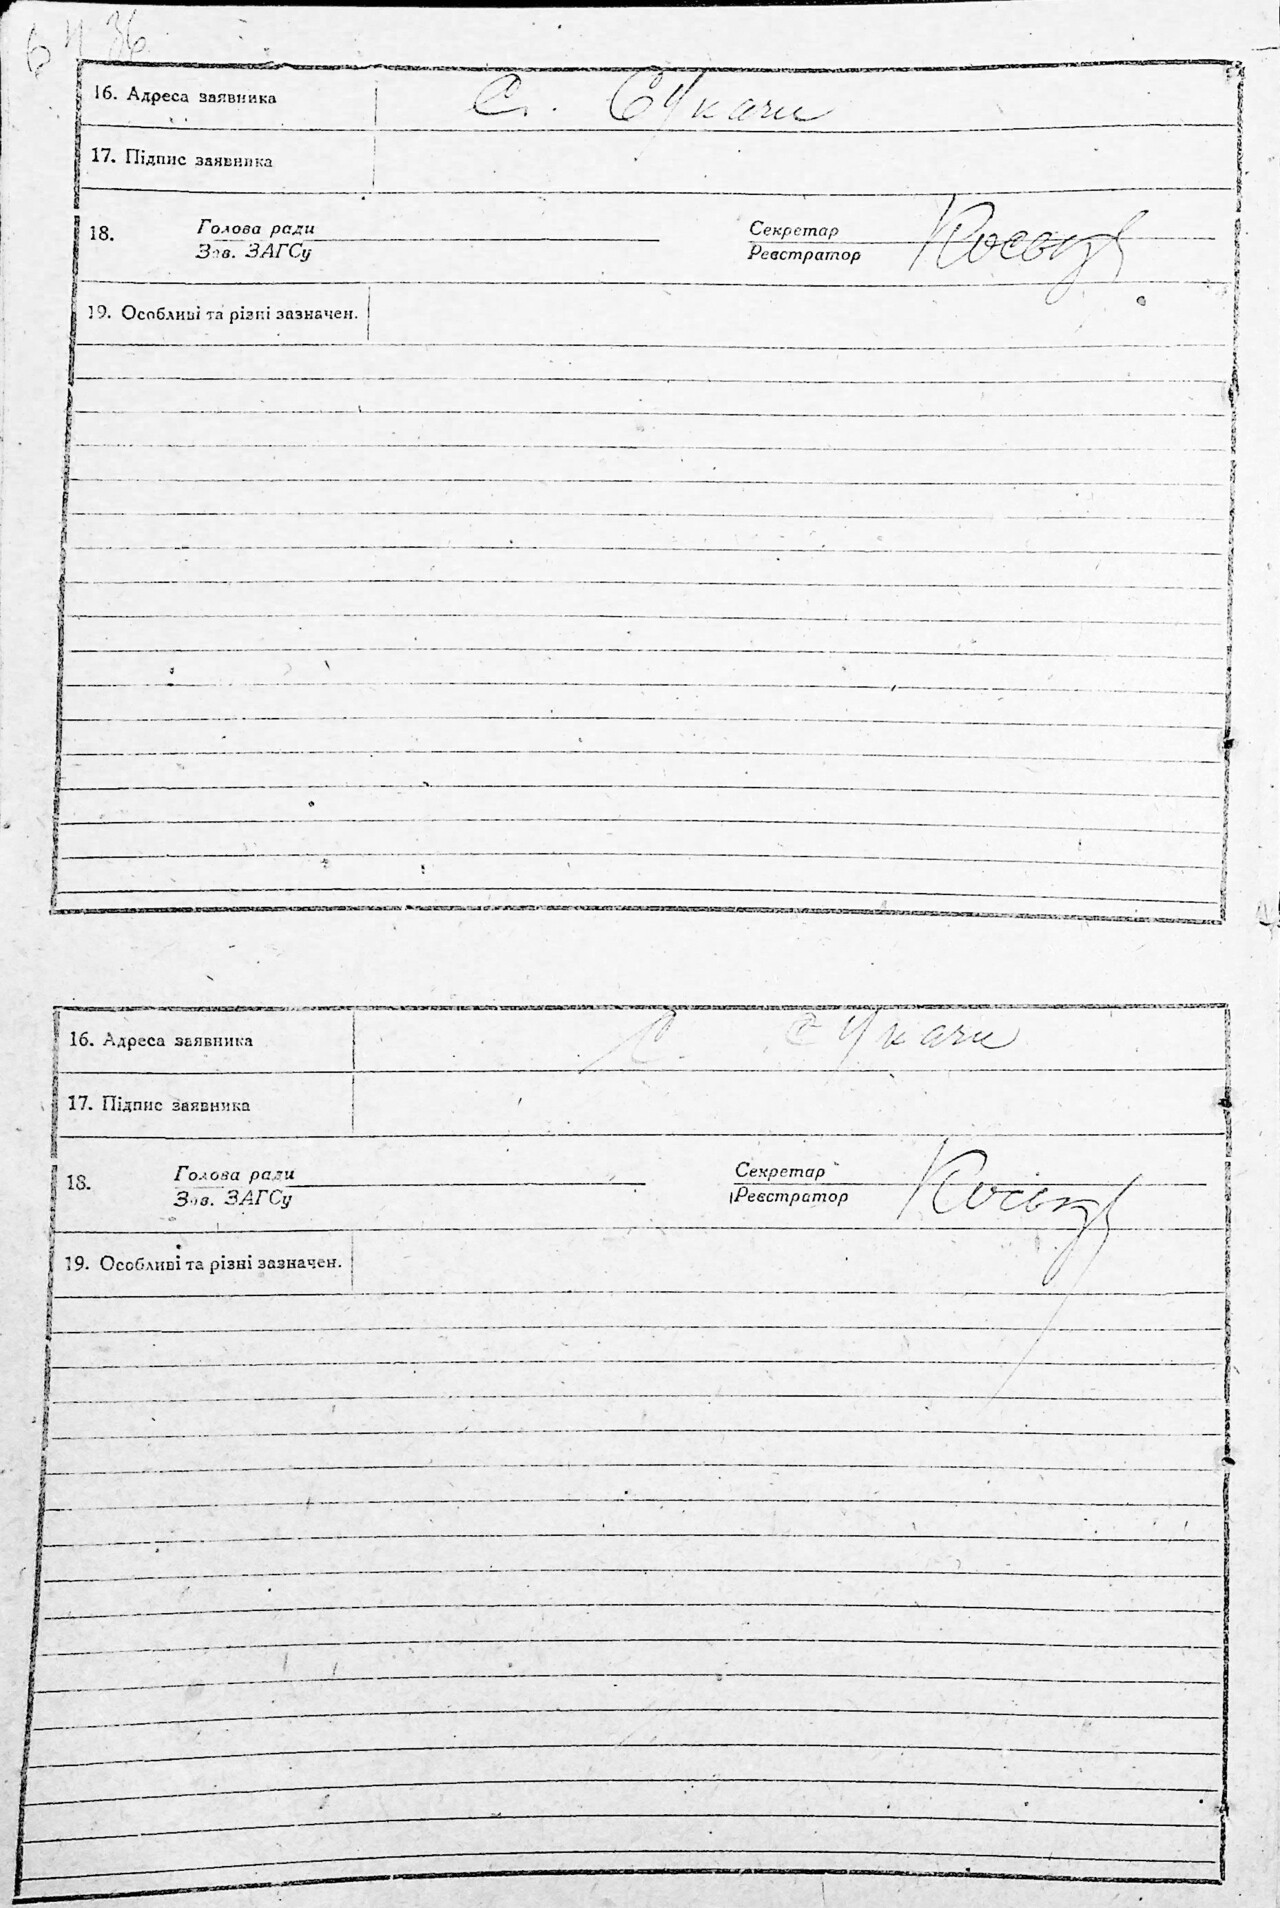 16. Адреса заявника С. Сукачи
17. Підпис заявника
18. Голова ради Секретар
Зав. ЗАГСу Реєстратор
19. Особливі та різні зазначен.
16. Адреса заявника С. Сукачи
17. Підпис заявника
18. Голова ради Секретар
Зав. ЗАГСу Реєстратор
19. Особливі та різні зазначен.